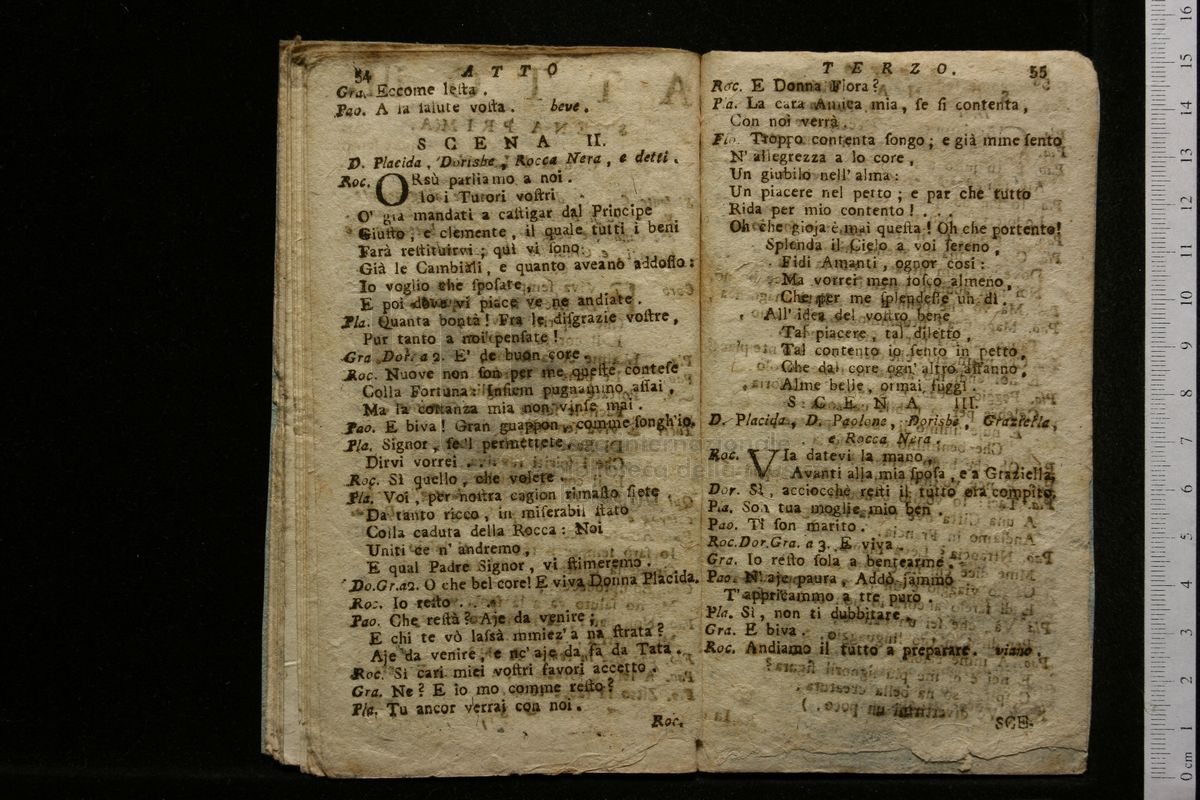 54 ATTO
Gra. Eccome lesta.
Pao. A la salute vosta. beve.
SCENA II.
D. Placida, Dorisbe, Rocca Nera, e detti.
Roc. ORsù parliamo a noi.
Io i Tutori vostri
O' già mandati a castigar dal Principe
Giusto, e clemente, il quale tutti i beni
Farà restituirvi; qui vi sono
Già le Cambiali, e quanto aveano addosso:
Io voglio che sposate,
E poi dove vi piace ve ne andiate.
Pla. Quanta bontà! Fra le disgrazie vostre,
Pur tanto a noi pensate!
Gra Dor. a 2. E' de buon core.
Roc. Nuove non son per me queste contese
Colla Fortuna: Insiem pugnammo assai,
Ma la costanza mia non vinse mai.
Pao. E biva! Gran guappon, comme songh'io.
Pla. Signor, se'l permettete,
Dirvi vorrei
Roc. Sì quello, che volete.
Pla. Voi, per nostra cagion rimasto siete
Da tanto ricco, in miserabil stato
Colla caduta della Rocca: Noi
Uniti ce n' andremo,
E qual Padre Signor, vi stimeremo.
Do.Gr.a2. O che bel core! E viva Donna Placida.
Roc. Io resto . . .
Pao. Che restà? Aje da venire;
E chi te vò lassà mmiez'a na strata?
Aje da venire, e nc'aje da fa da Tata.
Roc. Sì cari miei vostri favori accetto.
Gra. Ne? E io mo comme resto?
Pla. Tu ancor verrai con noi.
Roc.
TERZO. 55
Roc. E Donna Flora?
Pla. La cara Amica mia, se si contenta,
Con noi verrà.
Flo. Troppo contenta songo; e già mme sento
N' allegrezza a lo core,
Un giubilo nell' alma:
Un piacere nel petto; e par che tutto
Rida per mio contento! . . .
Oh che gioja è mai questa! Oh che portento!
Splenda il Cielo a voi sereno,
Fidi Amanti, ognor così:
Ma vorrei men fosco almeno,
Che per me splendesse un dì.
All' idea del vostro bene
Tal piacere, tal diletto,
Tal contento io sento in petto,
Che dal core ogn' altro affanno,
Alme belle, ormai fuggì.
SCENA III.
D. Placida, D. Paolone, Dorisbe, Graziella,
e Rocca Nera.
Roc. VIa datevi la mano,
Avanti alla mia sposa, e a Graziella,
Dor. Sì, acciocchè resti il tutto ora compito.
Pla. Son tua moglie mio ben.
Pao. Ti son marito.
Roc.Dor.Gra. a 3. E viva.
Gra. Io resto sola a bentearme.
Pao. N'aje paura, Addò jammo
T'appricammo a tre puro.
Pla. Sì, non ti dubbitare,
Gra. E biva.
Roc. Andiamo il tutto a preparare. viano.
SCE-